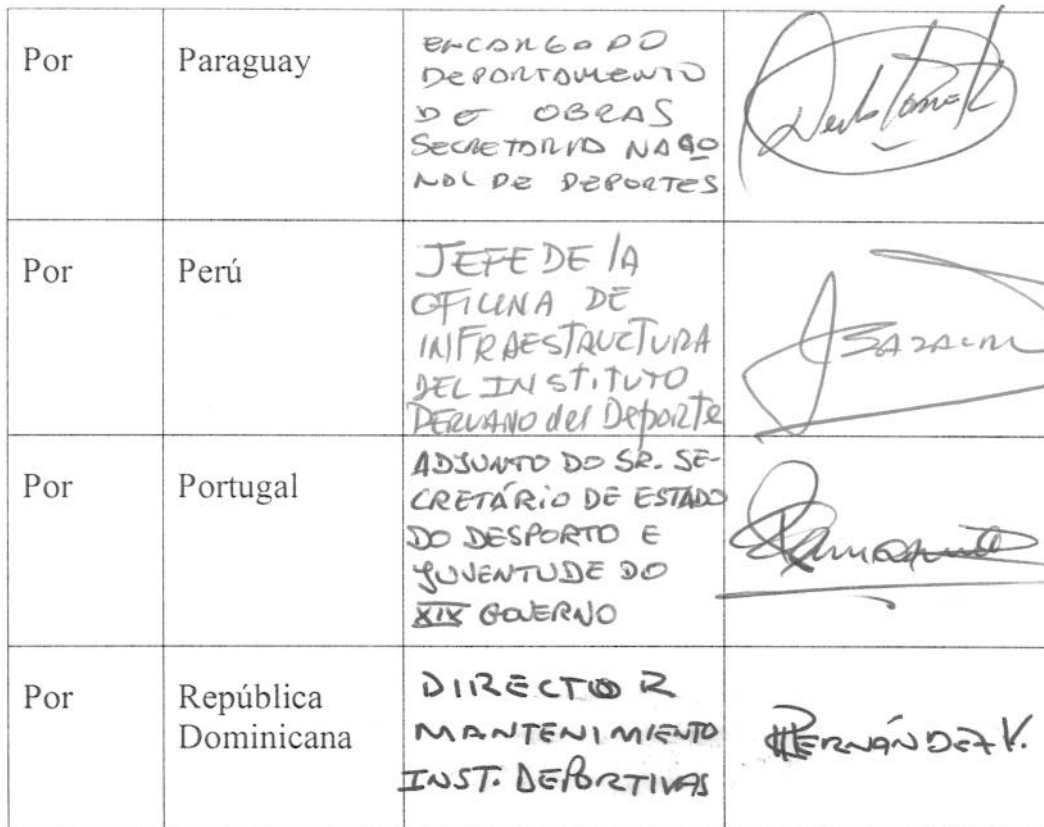 Por
Paraguay
ENCARGADO
DEPARTAMENTO
DE OBRAS
SECRETARIA NACIO
NAL DE DEPORTES
Por
Perú
JEFE DE lA
OFICINA DE
INFRAESTRUCTURA
DEL INSTITUTO
PERUANO del Deporte
Por
Portugal
ADJUNTO DO SR. SE-
CRETÁRIO DE ESTADO
DO DESPORTO E
JUVENTUDE DO
XIX GOVERNO
Por
República
Dominicana
DIRECTOR
MANTENIMIENTO
INST. DEPORTIVAS
HERNÁNDEZ V.